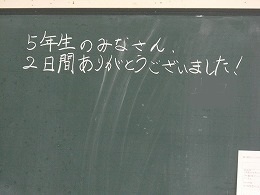 5年生のみなさん、
2日間ありがとうございました!